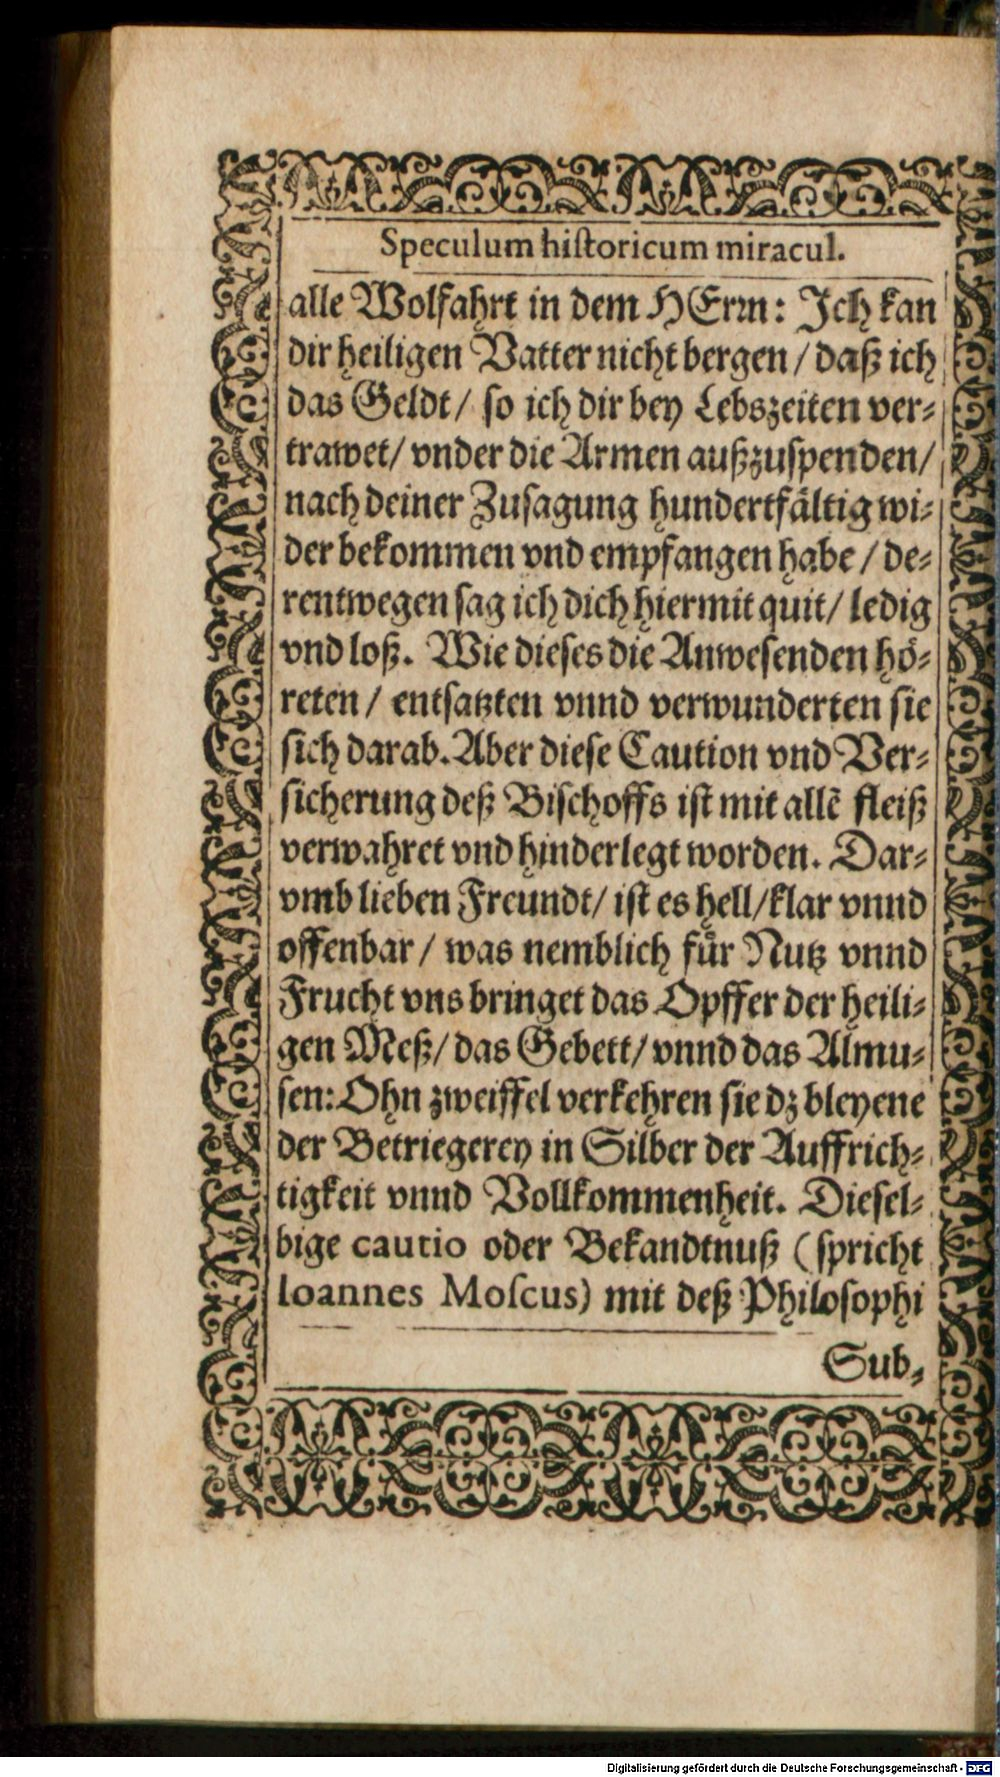 Speculum hiſtoricum miracul.
alle Wolfahrt in dem HErꝛn: Ich kan
dir heiligen Vatter nicht bergen / daß ich
das Geldt / ſo ich dir bey Lebszeiten ver-
trawet / vnder die Armen außzuſpenden /
nach deiner Zuſagung hundertfältig wi-
der bekommen vnd empfangen habe / de-
rentwegen ſag ich dich hiermit quit / ledig
vnd loß. Wie dieſes die Anweſenden hö-
reten / entſatzten vnnd verwunderten ſie
ſich darab. Aber dieſe Caution vnd Ver-
ſicherung deß Biſchoffs iſt mit allē fleiß
verwahret vnd hinderlegt worden. Dar-
vmb lieben Freundt / iſt es hell / klar vnnd
offenbar / was nemblich fuͤr Nutz vnnd
Frucht vns bringet das Opffer der heili-
gen Meß / das Gebett / vnnd das Almu-
ſen: Ohn zweiffel verkehren ſie dz bleyene
der Betriegerey in Silber der Auffrich-
tigkeit vnnd Vollkommenheit. Dieſel-
bige cautio oder Bekandtnuß (ſpricht
Ioannes Moſcus) mit deß Philoſophi
Sub-
Digitalisierung gefördert durch die Deutsche Forschungsgemeinschaft - DFG